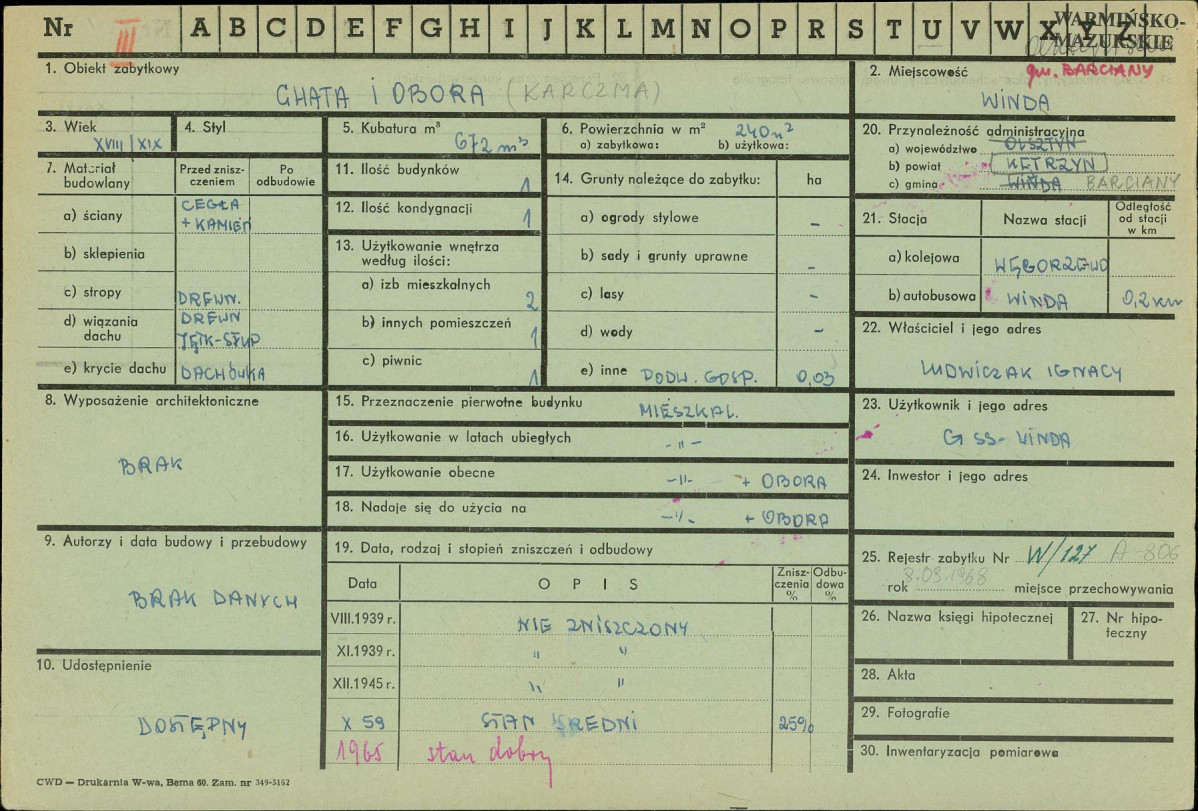 Nr III A B C D E F G H I J K L M N O P R S T U V W X Y Z
WARMIŃSKO-
MAZURSKIE
1. Obiekt zabytkowy
CHATA I OBORA (KARCZMA)
2. Miejscowość
gm. BARCIANY
WINDA
3. Wiek
XVIII/XIX
4. Styl
5. Kubatura m³
672 m³
6. Powierzchnia w m² 240 m²
a) zabytkowa: b) użytkowa:
20. Przynależność administracyjna
a) województwo OLSZTYN
b) powiat KĘTRZYN
c) gmina WINDA BARCIANY
7. Materiał budowlany
Przed znisz-
czeniem
Po
odbudowie
a) ściany CEGŁA
+ KAMIEŃ
b) sklepienia
c) stropy DREWN.
d) wiązania
dachu
DREWN
JĘTK-SŁUP
e) krycie dachu DACHÓWKA
11. Ilość budynków 1
12. Ilość kondygnacji 1
13. Użytkowanie wnętrza
według ilości:
a) izb mieszkalnych 2
b) innych pomieszczeń 1
c) piwnic 1
14. Grunty należące do zabytku: ha
a) ogrody stylowe –
b) sady i grunty uprawne –
c) lasy –
d) wody –
e) inne PODW. GOSP. 0,03
21. Stacja Nazwa stacji Odległość
od stacji
w km
a) kolejowa WĘGORZEWO
b) autobusowa WINDA 0,2 km
22. Właściciel i jego adres
LUDWICZAK IGNACY
8. Wyposażenie architektoniczne
BRAK
15. Przeznaczenie pierwotne budynku MIESZKAL.
16. Użytkowanie w latach ubiegłych -"-
17. Użytkowanie obecne -"- + OBORA
18. Nadaje się do użycia na -"- + OBORA
23. Użytkownik i jego adres
G SS - WINDA
24. Inwestor i jego adres
9. Autorzy i data budowy i przebudowy
BRAK DANYCH
19. Data, rodzaj i stopień zniszczeń i odbudowy
Data OPIS Znisz-
czenia
%
Odbu-
dowa
%
VIII.1939 r. NIE ZNISZCZONY
XI.1939 r. " "
XII.1945 r. " "
X 59 STAN ŚREDNI 25%
1965 stan dobry
25. Rejestr zabytku Nr W/127 A-806
8.03.1968
rok miejsce przechowywania
26. Nazwa księgi hipotecznej
27. Nr hipo-
teczny
10. Udostępnienie
DOSTĘPNY
28. Akta
29. Fotografie
30. Inwentaryzacja pomiarowa
CWD — Drukarnia W-wa, Bema 60. Zam. nr 349-5162